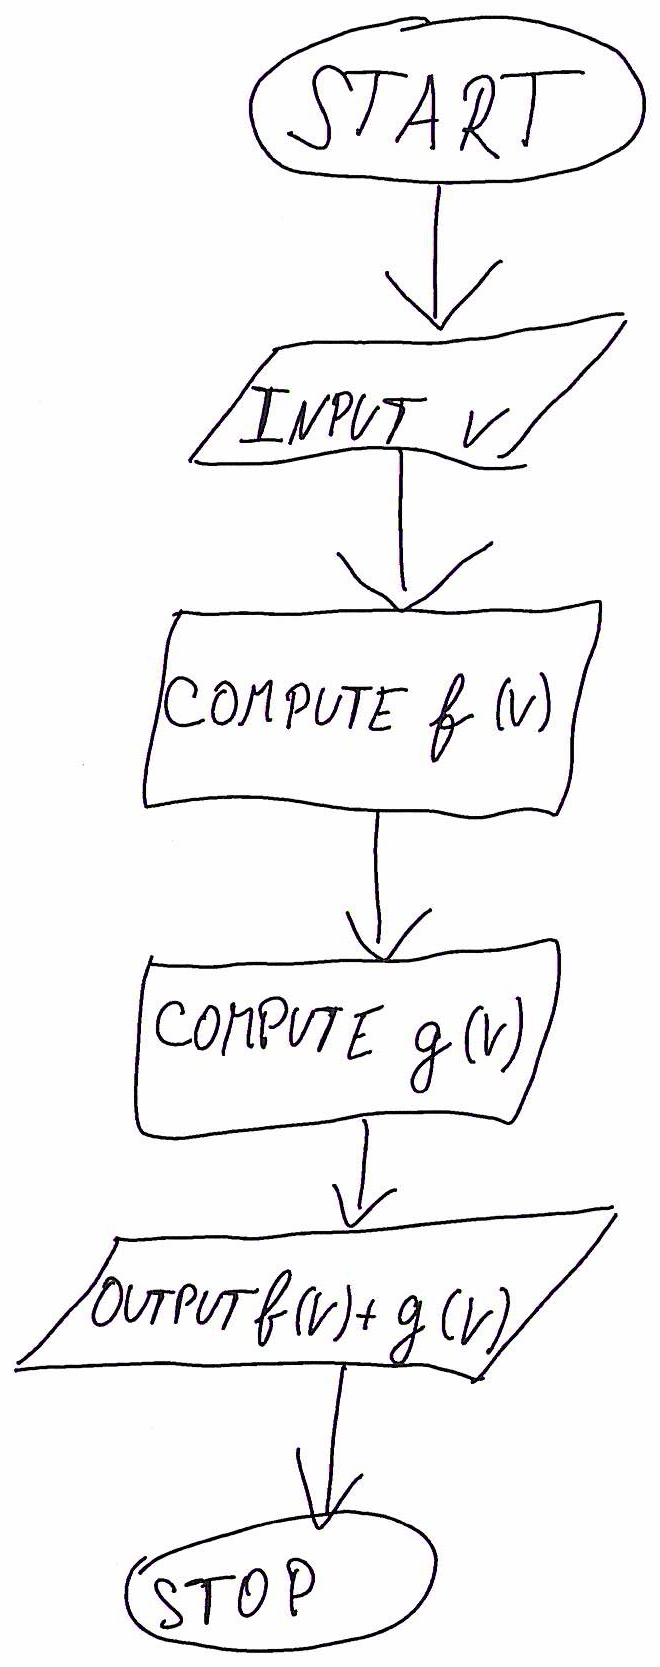 START
INPUT V
COMPUTE f (V)
COMPUTE g (V)
OUTPUT f (V) + g (V)
STOP